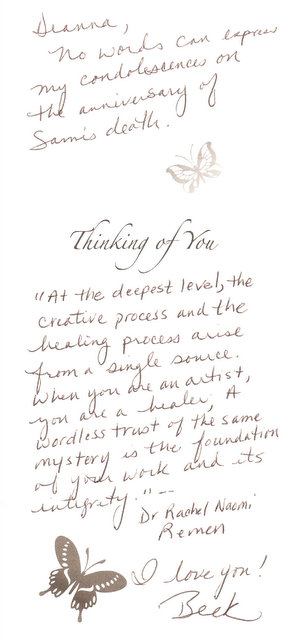 Deanna,
No words can express
my condolescences on
the anniversary of
Sami's death.
Thinking of You
"At the deepest level, the
creative process and the
healing process arise
from a single source.
When you are an artist,
you are a healer; A
wordless trust of the same
mystery is the foundation
of your work and its
integrity." --
Dr Rachel Naomi
Remen
I love you!
Beck